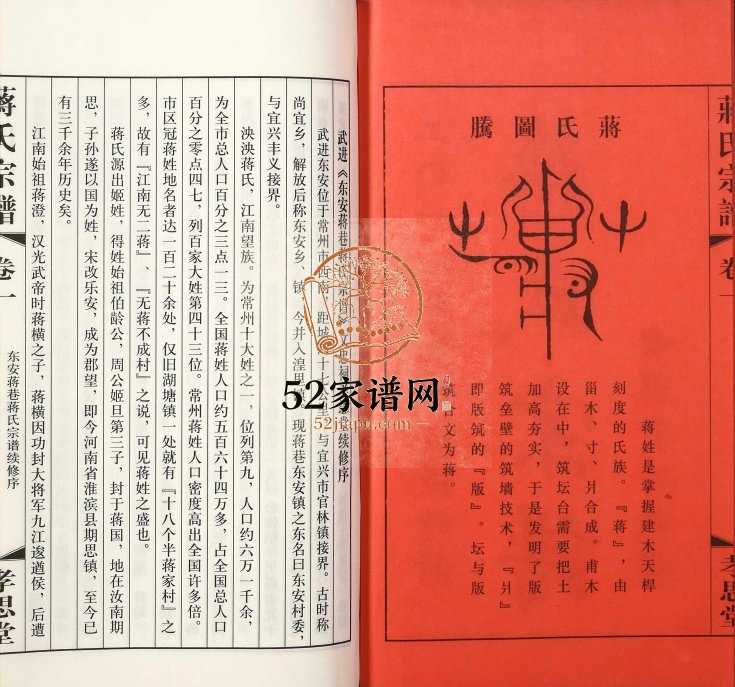 蔣氏宗譜
卷一
孝思堂
蔣氏圖騰
蒋姓是掌握建木天桿
刻度的氏族。『蒋』，由
甾木、寸、爿合成。甫木
设在中，筑坛台需要把土
加高夯实，于是发明了版
筑垒壁的筑墙技术，『爿』
即版筑的『版』。坛与版
筑合文为蒋。
武进《东安蒋巷蒋氏宗谱》续修序
武进东安位于常州市西南，距城十七公里，与宜兴市官林镇接界。古时称
尚宜乡，解放后称东安乡、镇，今并入湟里镇，现蒋巷东安镇之东名曰东安村委，
与宜兴丰义接界。
泱泱蒋氏，江南望族。为常州十大姓之一，位列第九，人口约六万一千余，
为全市总人口百分之三点一三。全国蒋姓人口约五百六十四万多，占全国总人口
百分之零点四七，列百家大姓第四十三位。常州蒋姓人口密度高出全国许多倍。
市区冠蒋姓地名者达一百二十余处，仅旧湖塘镇一处就有『十八个半蒋家村』之
多，故有『江南无二蒋』、『无蒋不成村』之说，可见蒋姓之盛也。
蒋氏源出姬姓，得姓始祖伯龄公，周公姬旦第三子，封于蒋国，地在汝南期
思，子孙遂以国为姓，宋改乐安，成为郡望，即今河南省淮滨县期思镇，至今已
有三千余年历史矣。
江南始祖蒋澄，汉光武帝时蒋横之子，蒋横因功封大将军九江逡遒侯，后遭
蔣氏宗譜
卷一
东安蒋巷蒋氏宗谱续修序
孝思堂
52家谱网
52jiapu.com